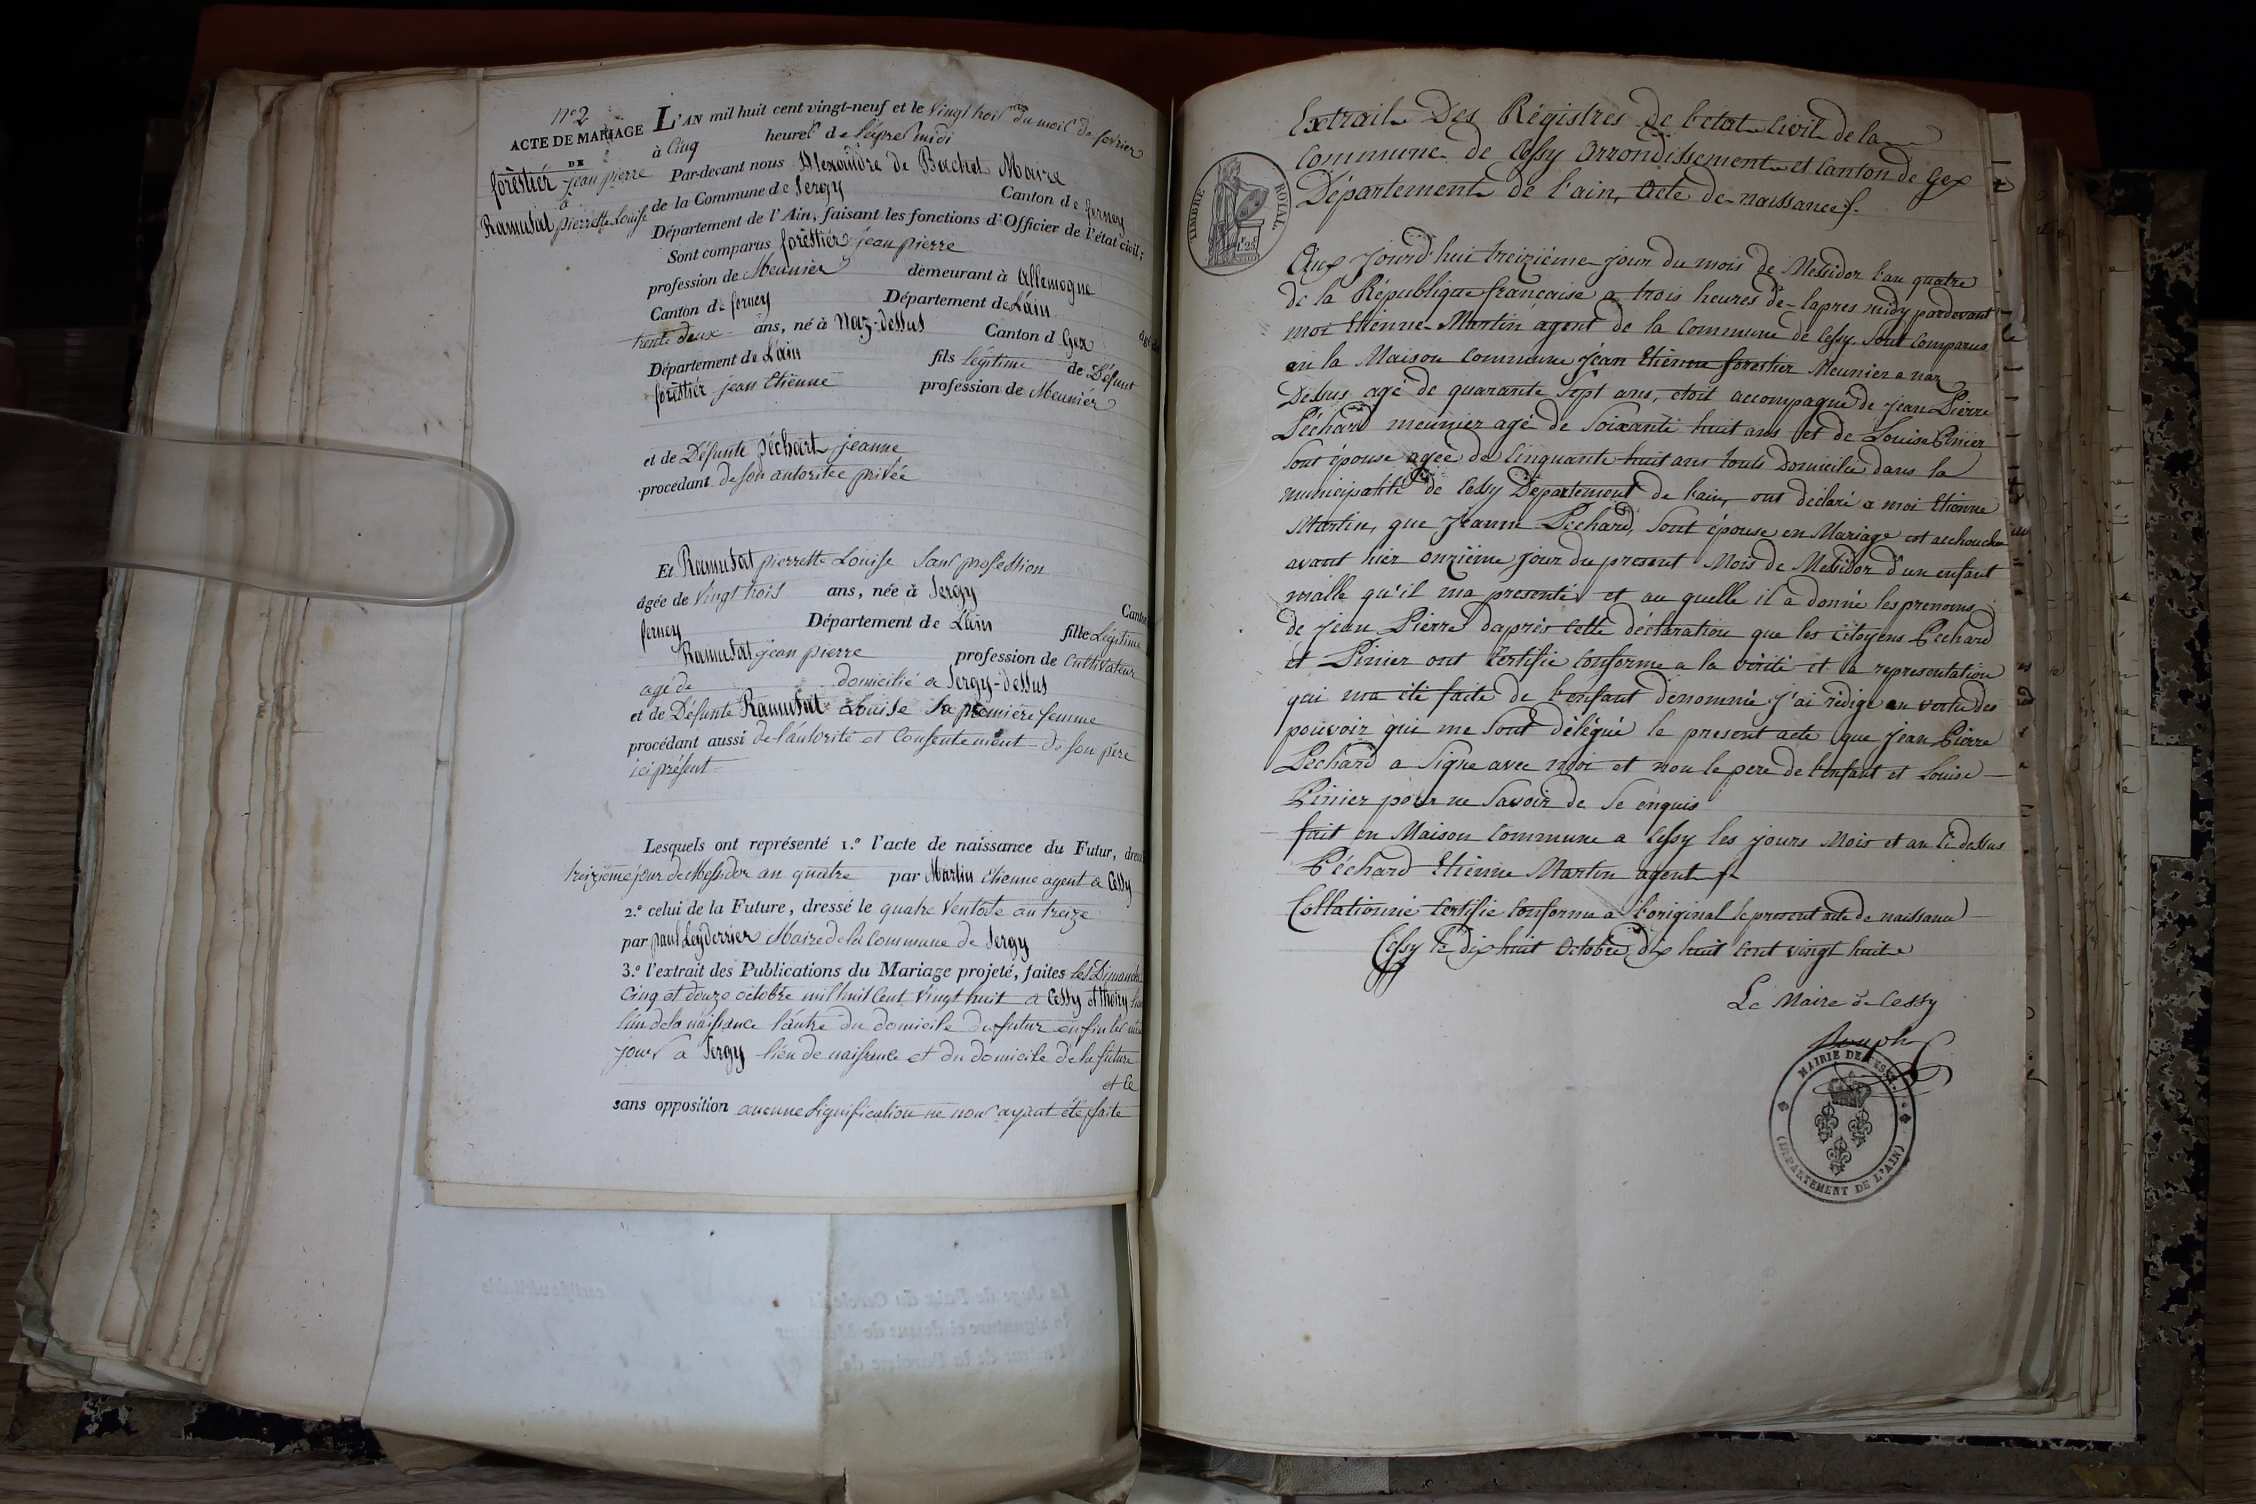 nº 2
ACTE DE MARIAGE
DE
forèstier jean pierre
à
Ramusat pierrette Louise
L'AN mil huit cent vingt-neuf et le vingt trois du mois de fevrier
à Cinq heures de l'après midi
Par-devant nous Alexandre de Bachet Maire
de la Commune de Sergy Canton de ferney
Département de l'Ain, faisant les fonctions d'Officier de l'état civil;
Sont comparus forèstier jean pierre
profession de Meunier demeurant à Allemogne
Canton de ferney Département de L'ain
trente deux ans, né à naz-dessus Canton d Gex
Département de L'ain fils légitime de Défunt
forèstier jean Etienne profession de Meunier
et de Défunte péchart jeanne
procédant de son autoritee privée
Et Ramusat pierrette Louise sans profession
âgée de vingt trois ans, née à Sergy Canton
ferney Département de L'ain fille Légitime
Ramusat jean pierre profession de Cultivateur
agé de domicilié a Sergy-dessus
et de Défunte Ramusat Louise sa première femme
procédant aussi de l'autorité et Consentement de son père
ici présent
Lesquels ont représenté 1.º l'acte de naissance du Futur,
treizième jour de Messidor an quatre par Martin Etienne agent a Cessy
2.º celui de la Future, dressé le quatre Ventose an treize
par paul Leyderrier Maire de la Commune de Sergy
3.º l'extrait des Publications du Mariage projeté, faites les Dimanche
Cinq et douze octobre mil huit Cent vingt huit a Cessy et thoiry
lieu de la naissance l'autre du domicile du futur enfin les
jours a Sergy lieu de naissance et du domicile de la future
et Ce
sans opposition aucune signification ne nous ayant été faite
TIMBRE ROYAL
Extrait Des Régistres de l'état Civil de la
Commune de Cessy Arrondissement et Canton de Gex
Département de l'ain, Acte de naissance
Aux Jourd'hui treizième jour du mois de Messidor l'an quatre
de la République française a trois heures de lapres midy pardevant
moi Etienne Martin agent de la Commune de Cessy Sont Comparus
en la Maison Commune Jean Etienne forestier Meunier a nar
Dessus agé de quarante Sept ans, etoit accompagné de Jean Pierre
Péchard meunier agé de Soixante huit ans et de Louise Pinier
Sont épouse agée de Cinquante huit ans touts Domicilié dans la
municipalité de Cessy Département de l'ain, ont déclaré a moi Etienne
Martin, que Jeanne Pechard, Sont épouse en Mariage est acchouchée
avant hier onzième jour du present Mois de Messidor d'un enfant
malle qu'il ma presenté et au quelle il a donné les prenoms
de Jean Pierre daprès Cette déclaration que les Citoyens Pechard
et Pinier ont Certifie Conforme a la vérité et la representation
qui ma été faite de l'enfant dénommé j'ai rédigé en vertu des
pouvoir qui me Sont délégué le present acte que Jean Pierre
Pechard a Signe avec moi et non le pere de l'enfant et Louise
Pinier pour ne Savoir de Se enquis
fait en Maison Commune a Cessy les jours Mois et an Ci dessus
Péchard Etienne Martin agent
Collationné Certifie Conforme a l'original le present acte de naissance
Cessy le dix huit Octobre dix huit Cent vingt huit
Le Maire de Cessy
MAIRIE DE CESSY
(DEPARTEMENT DE L'AIN)